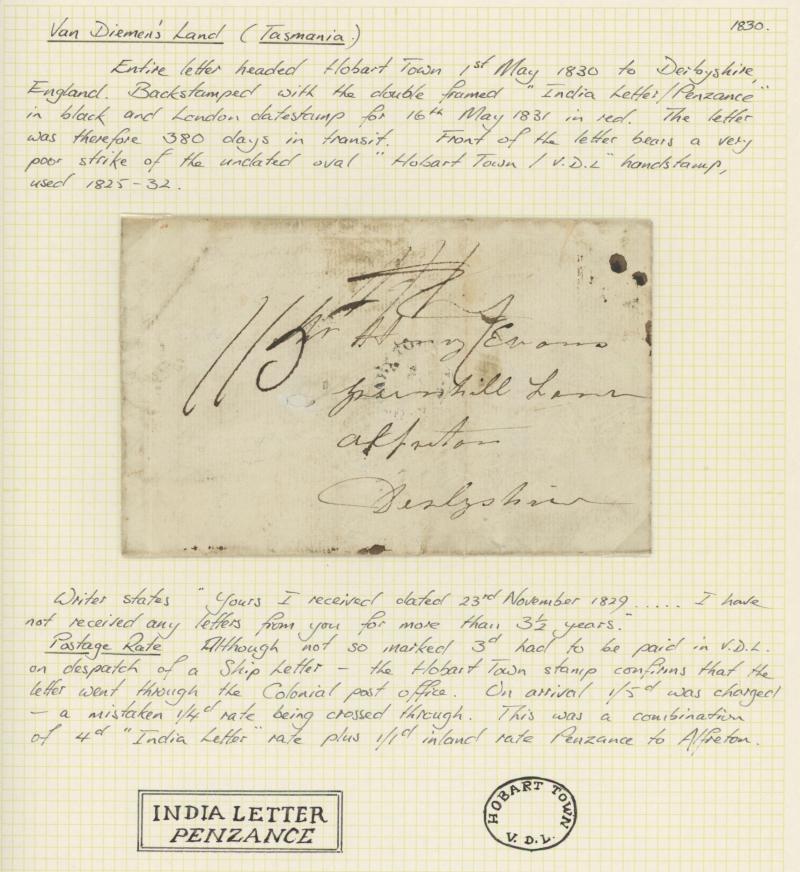 Van Diemen's Land (Tasmania.)
1830.
Entire letter headed Hobart Town 1st May 1830 to Derbyshire,
England. Backstamped with the double framed "India Letter/Penzance"
in black and London datestamp for 16th May 1831 in red. The letter
was therefore 380 days in transit. Front of the letter bears a very
poor strike of the undated oval "Hobart Town / V.D.L" handstamp,
used 1825-32.
1/5
Mr Henry Evans
Lane
Alfreton
Derbyshire
Writer states "Yours I received dated 23rd November 1829..... I have
not received any letters from you for more than 3½ years."
Postage Rate Although not so marked 3d had to be paid in V.D.L.
on despatch of a Ship Letter - the Hobart Town stamp confirms that the
letter went through the Colonial post office. On arrival 1/5d was charged
- a mistaken 1/4d rate being crossed through. This was a combination
of 4d "India Letter" rate plus 1/1d inland rate Penzance to Alfreton.
INDIA LETTER
PENZANCE
HOBART TOWN
V.D.L.